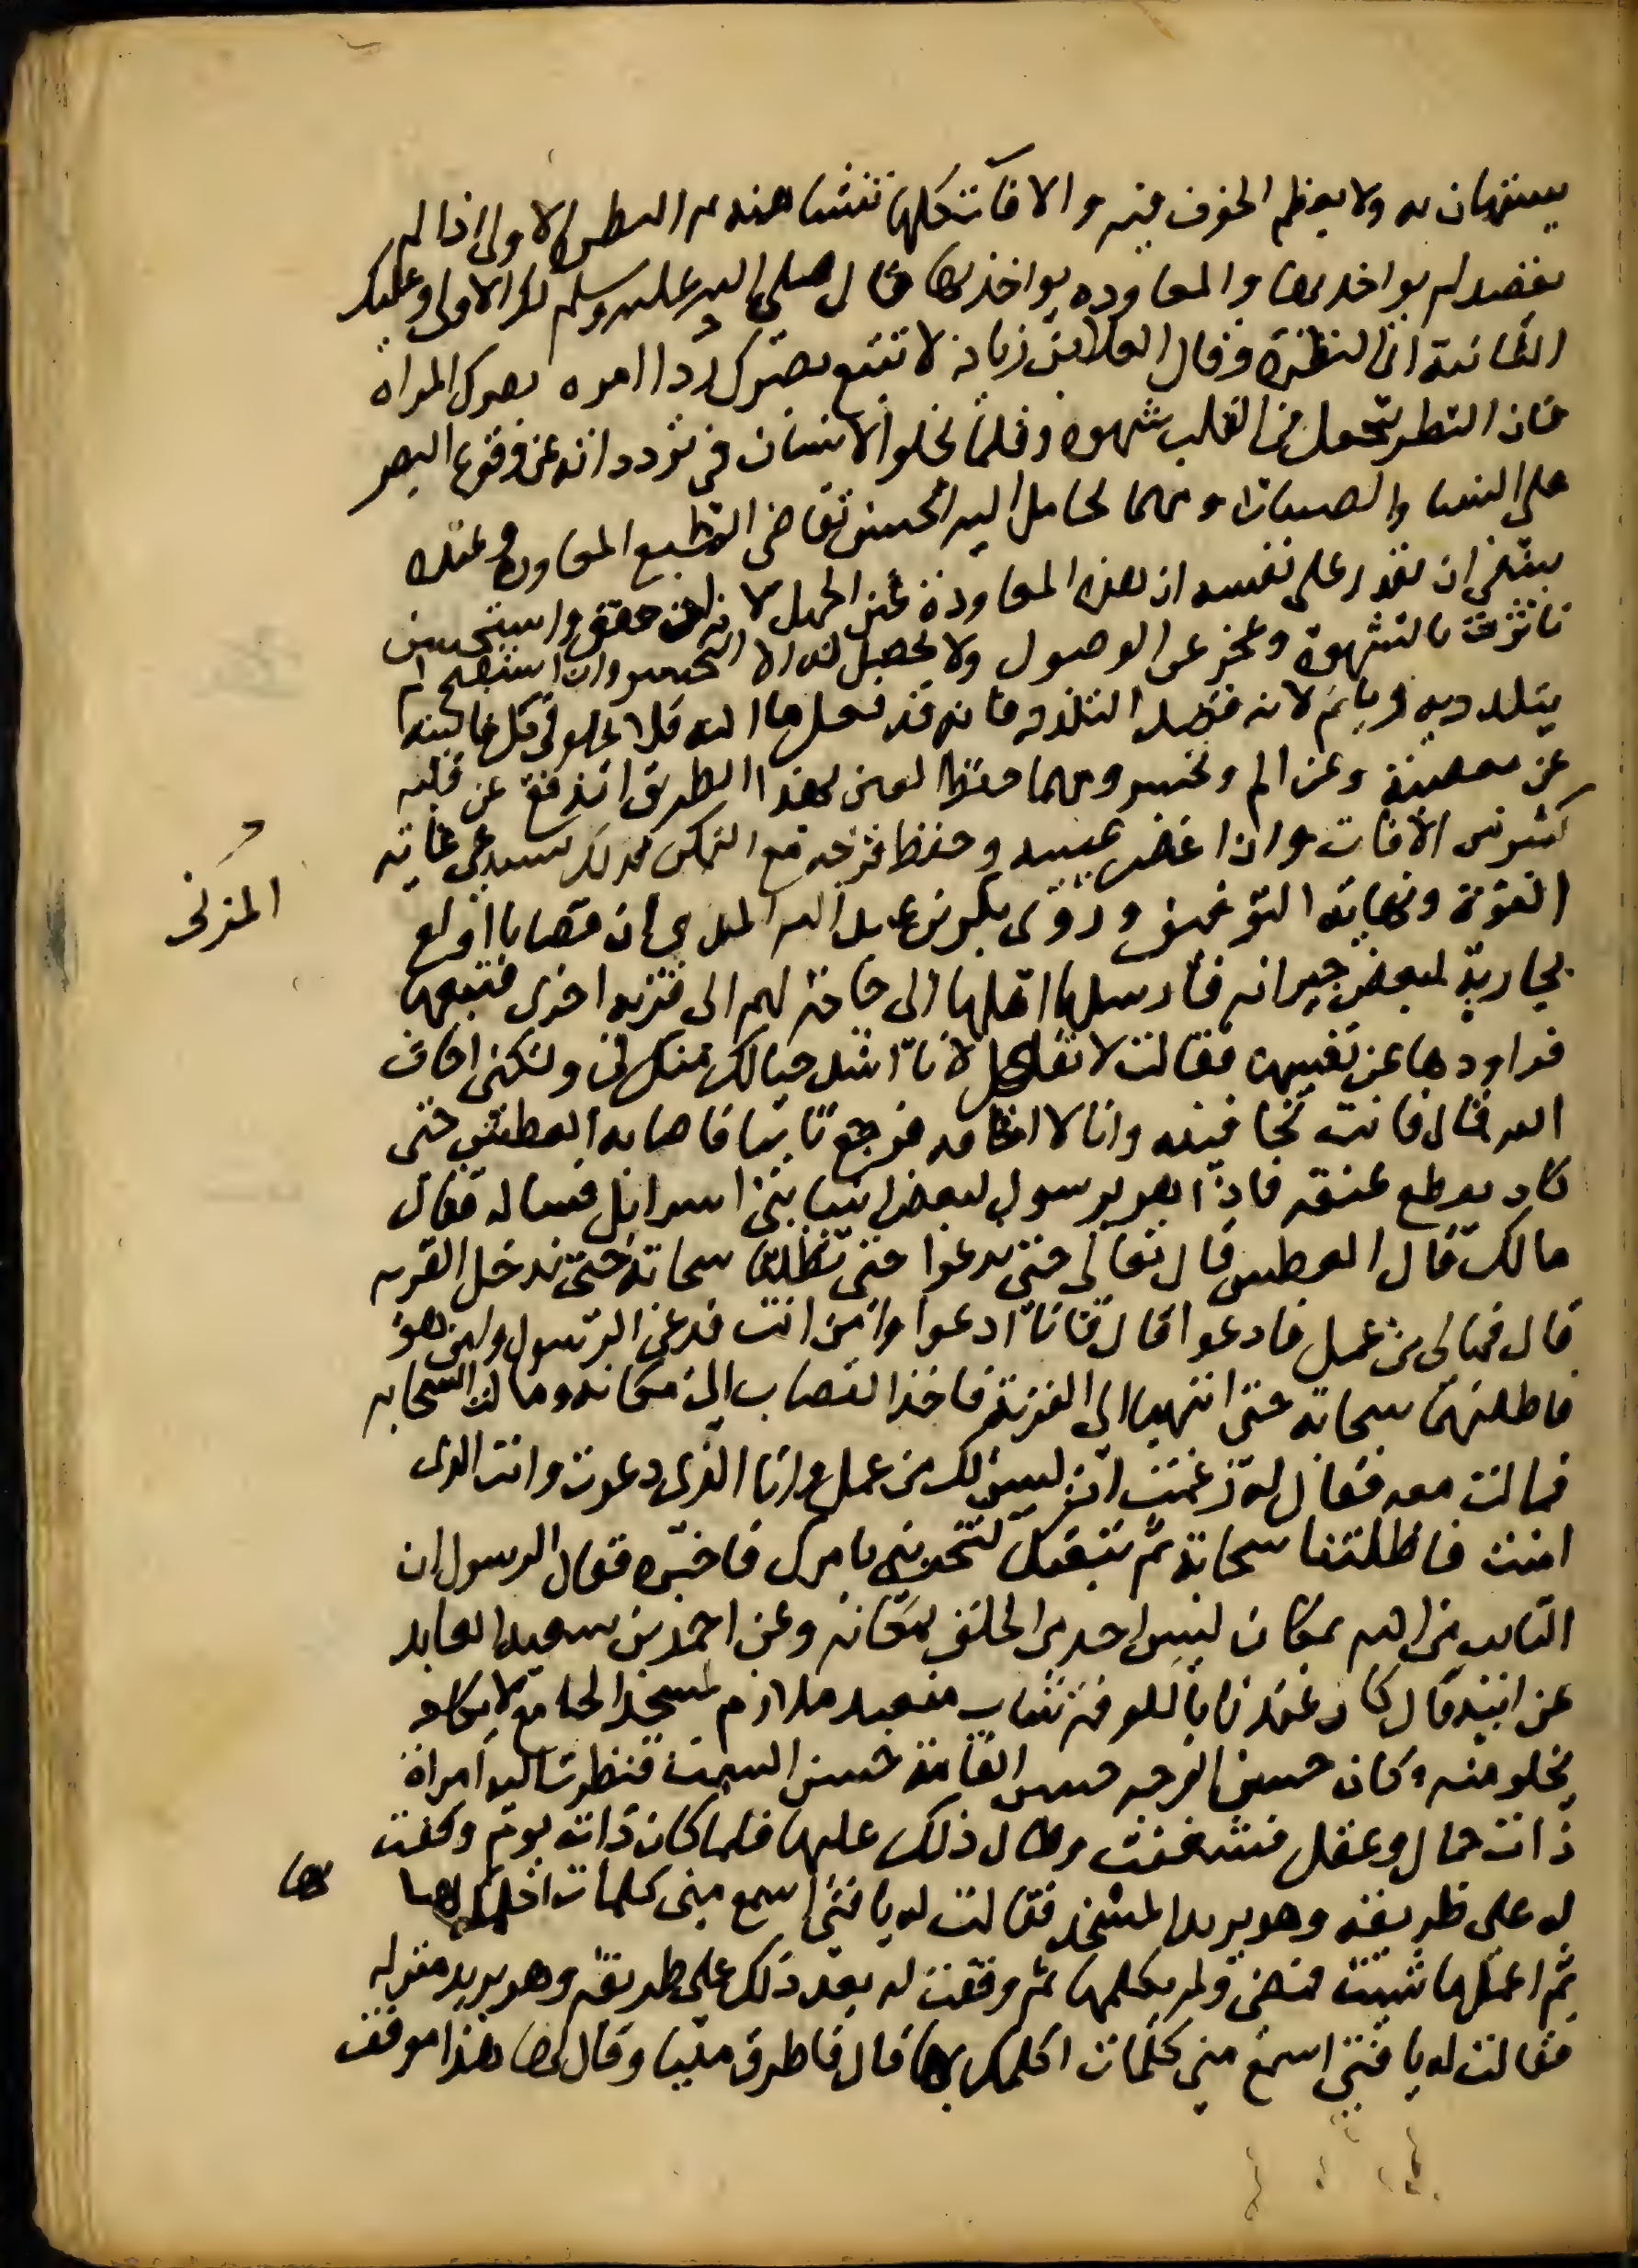 يستهان به ولا يعظم الخوف منه والافات كلها تنشا منه والنظرة الاولى اذا لم
يقصد لم يواخذ بها والمعاوده يواخذ بها قال صلى الله عليه وسلم لك الاولى وعليك
الثانية اي النظرة وقال العلا بن زياد لا تتبع بصرك ردا المراة
فان النظر يجعل في القلب شهوة وقلما يخلو الانسان في تردداته عن وقوع البصر
على النسا والصبيان ومهما تخايل اليه الحسن تقاضى الطبع المعاودة وعنده
ينبغي ان يقرر على نفسه ان هذه المعاودة عين الجهل لانه ان حقق واستحسن
ثارت الشهوة وعجز عن الوصول ولا يحصل له الا التحسر وان استقبح لم
يتلذذ به وياثم لانه قصد التلذذ فانه قد فعل ما المه فلا يخلو في كل حالتيه
عن معصية وعن الم وتحسر ومهما حفظ العين بهذا الطريق اندفع عن قلبه
كثير من الافات وان اغض عينيه وحفظ فرجه مع التمكن فذلك يستدعي غاية
القوة ونهاية التوفيق وروى بكر بن عبد الله المدني ان قصابا اولع
المزني
بجارية لبعض جيرانه فارسلها اهلها الى حاجة لهم الى قرية اخرى فتبعها
فراودها عن نفسها فقالت لا تفعل لانا اشد حبا لك منك لي ولكني اخاف
الله قال فانت تخافينه وانا لا اخافه فرجع تائبا فاصابه العطش حتى
كاد يقطع عنقه فاذا هو برسول لبعض انبيا بني اسرائيل فساله فقال
مالك قال العطش قال تعالى حتى ندعوا حتى تظلنا سحابة حتى ندخل القريه
قال فمالي من عمل فادعوا قال فانا ادعوا وامن انت فدعى الرسول وامن هو
فاظلتهما سحابة حتى انتهيا الى القرية فاخذ القصاب الى مكانه ومالت السحابه
فمالت معه فقال له زعمت ان ليس لك من عمل وانا الذي دعوت وانت الذى
امنت فاظلتنا سحابة ثم تبعتك لتخبرني بامرك فاخبره فقال الرسول ان
التايب من الله بمكان ليس احد من الخلق بمكانه وعن احمد بن سعيد العابد
عن ابيه قال كان عندنا بالكوفة شاب متعبد ملازم لمسجد الجامع لا يكاد
يخلو منه وكان حسن الوجه حسن القامة حسن السمت فنظرت اليه امراة
ذات جمال وعقل فشغفت وطال ذلك عليها فلما كان ذات يوم وقفت
له على طريقه وهو يريد المسجد فقالت له يا فتى اسمع مني كلمات اكلمك بها
بها
ثم اعمل ما شيت فمضى ولم يكلمها ثم وقفت له بعد ذلك على طريقه وهو يريد منزله
فقالت له يا فتى اسمع مني كلمات اكلمك بها قال فاطرق مليا وقال لها هذا موقف